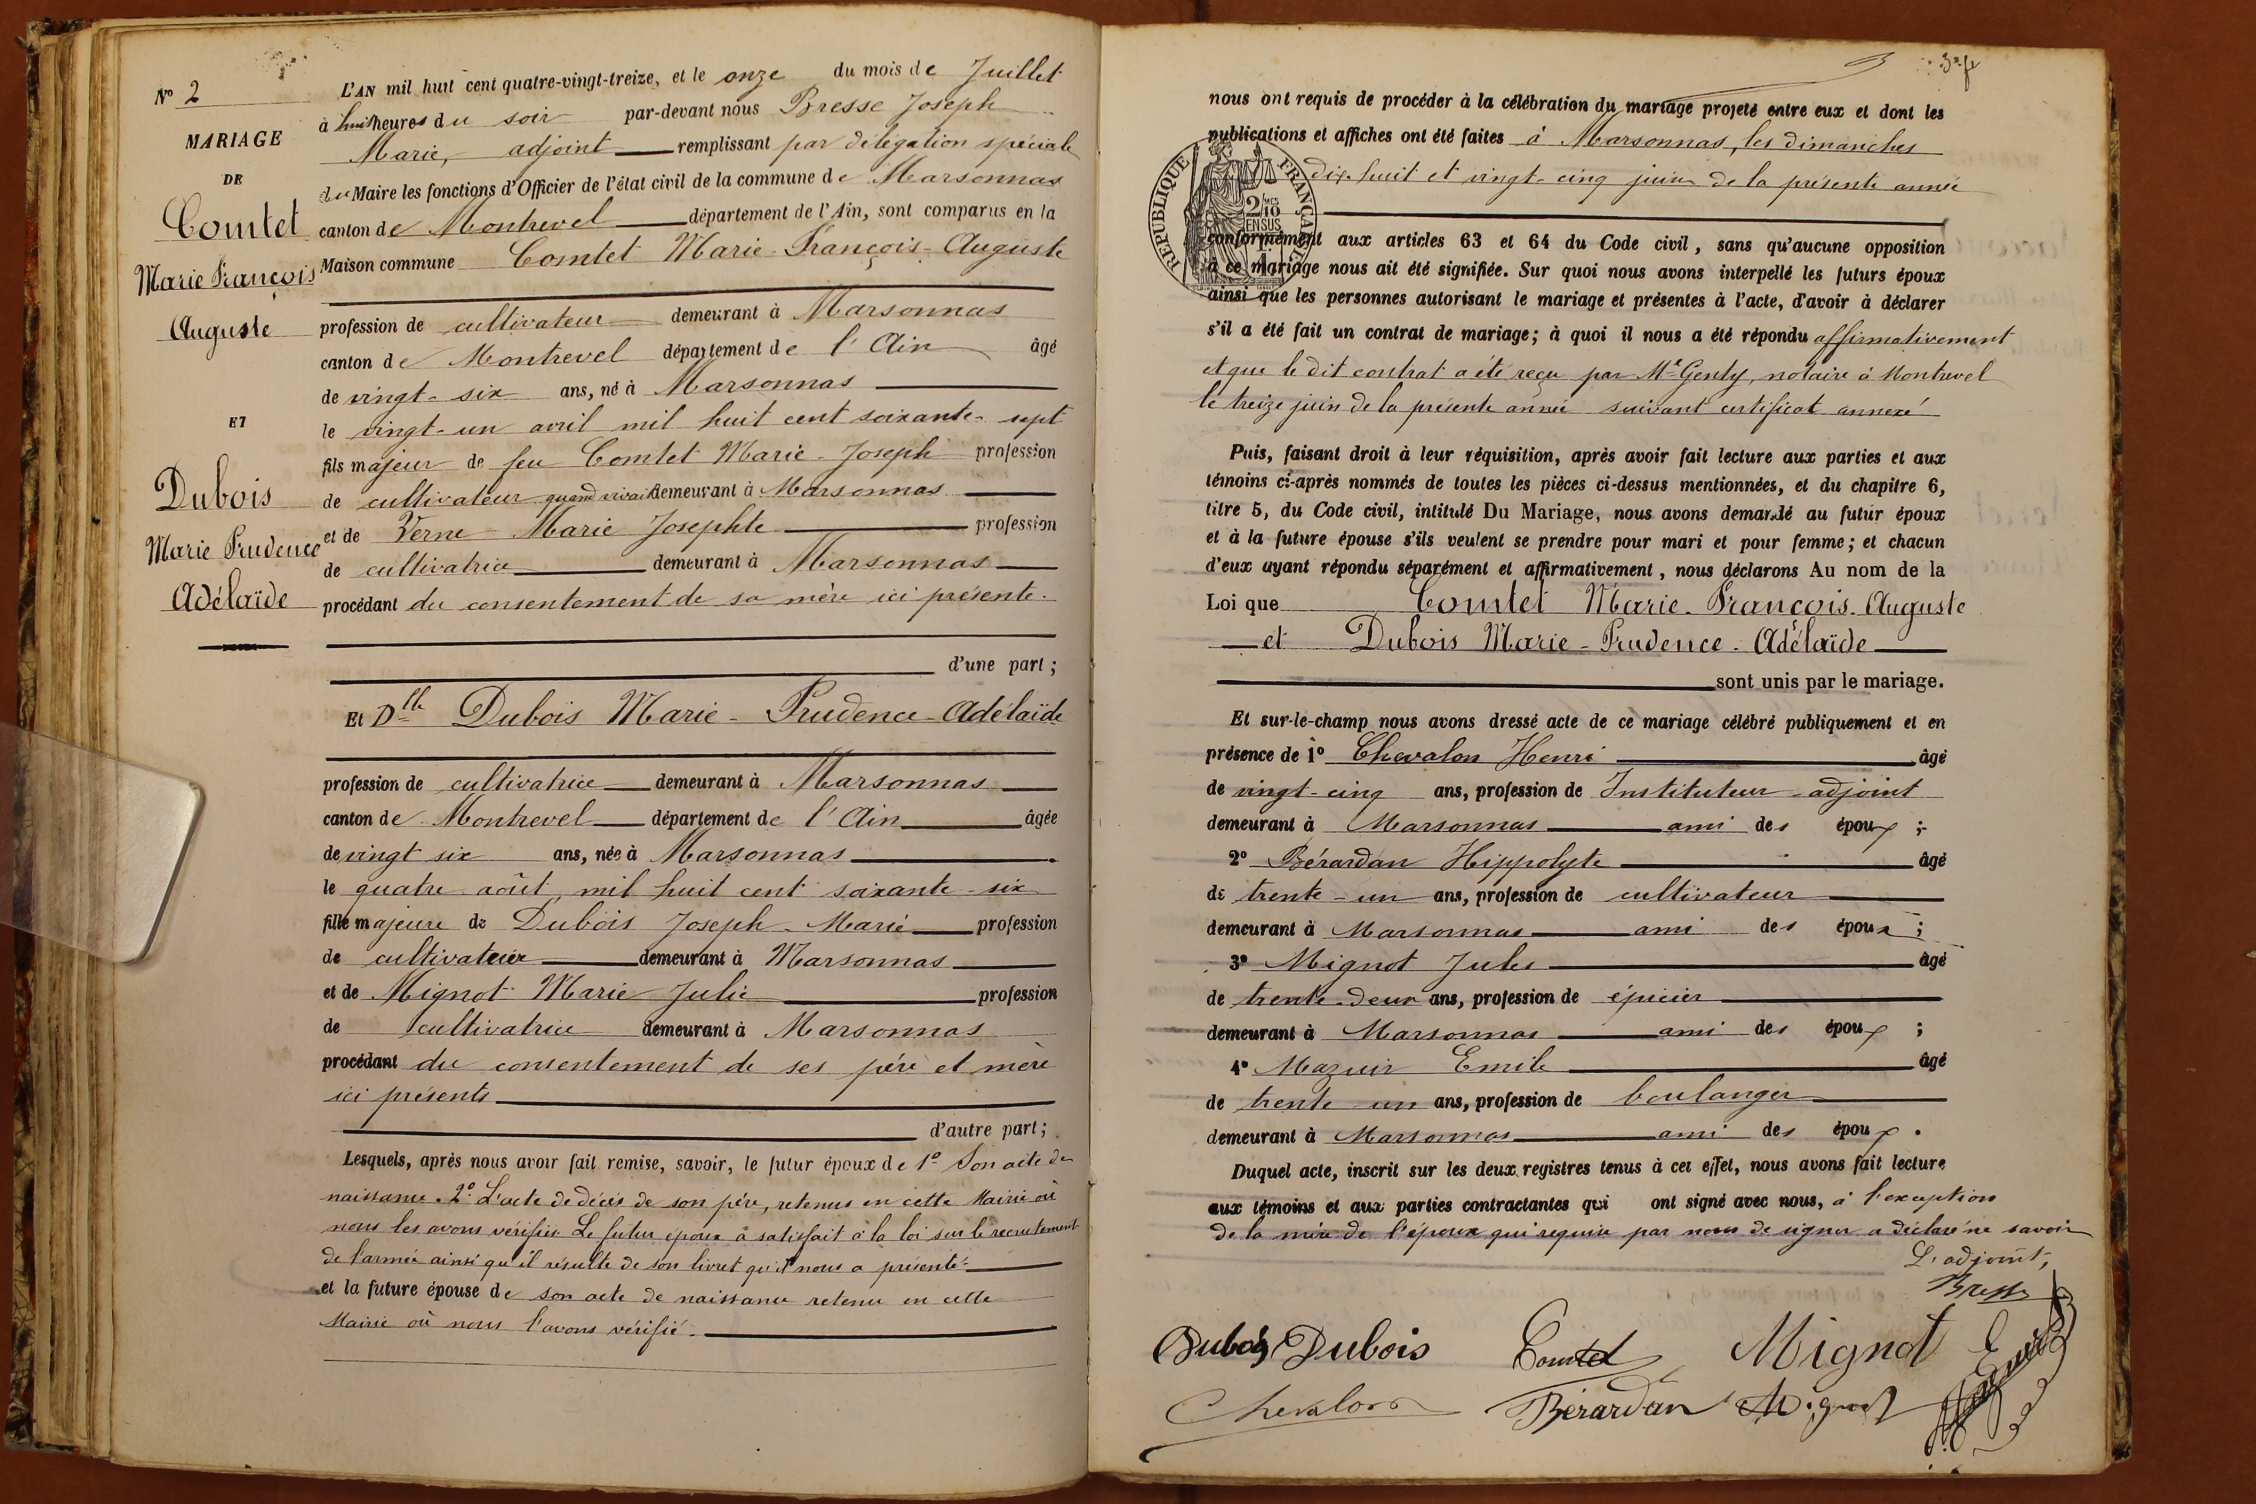 N° 2
MARIAGE
DE
Comtet
Marie François
Auguste
ET
Dubois
Marie Prudence
Adélaïde
L'AN mil huit cent quatre-vingt-treize, et le onze du mois de Juillet
à huit heures du soir par-devant nous Bresse Joseph
Marie, adjoint remplissant par délégation spéciale
du Maire les fonctions d'Officier de l'état civil de la commune de Marsonnas
canton de Montrevel département de l'Ain, sont comparus en la
Maison commune Comtet Marie-François-Auguste
profession de cultivateur demeurant à Marsonnas
canton de Montrevel département de l'Ain âgé
de vingt-six ans, né à Marsonnas
le vingt-un avril mil huit cent soixante-sept
fils majeur de feu Comtet Marie-Joseph profession
de cultivateur quand vivait demeurant à Marsonnas
et de Verne Marie Josephte profession
de cultivatrice demeurant à Marsonnas
procédant du consentement de sa mère ici présente.
d'une part;
Et Dlle Dubois Marie-Prudence-Adélaïde
profession de cultivatrice demeurant à Marsonnas
canton de Montrevel département de l'Ain âgée
de vingt six ans, née à Marsonnas
le quatre août mil huit cent soixante-six
fille majeure de Dubois Joseph-Marie profession
de cultivateur demeurant à Marsonnas
et de Mignot Marie Julie profession
de cultivatrice demeurant à Marsonnas
procédant du consentement de ses père et mère
ici présents
d'autre part;
Lesquels, après nous avoir fait remise, savoir, le futur époux de 1° Son acte de
naissance. 2° L'acte de décès de son père, retenus en cette Mairie où
nous les avons vérifiés Le futur époux a satisfait à la loi sur le recrutement
de l'armée ainsi qu'il résulte de son livret qu'il nous a présenté.
et la future épouse de son acte de naissance retenu en cette
Mairie où nous l'avons vérifié.
nous ont requis de procéder à la célébration du mariage projeté entre eux et dont les
publications et affiches ont été faites à Marsonnas, les dimanches
dix-huit et vingt-cinq juin de la présente année
RÉPUBLIQUE FRANÇAISE
2/10
EN SUS
conformément aux articles 63 et 64 du Code civil, sans qu'aucune opposition
à ce mariage nous ait été signifiée. Sur quoi nous avons interpellé les futurs époux
ainsi que les personnes autorisant le mariage et présentes à l'acte, d'avoir à déclarer
s'il a été fait un contrat de mariage; à quoi il nous a été répondu affirmativement
et que le dit contrat a été reçu par Me Genty, notaire à Montrevel
le treize juin de la présente année suivant certificat annexé
Puis, faisant droit à leur réquisition, après avoir fait lecture aux parties et aux
témoins ci-après nommés de toutes les pièces ci-dessus mentionnées, et du chapitre 6,
titre 5, du Code civil, intitulé Du Mariage, nous avons demandé au futur époux
et à la future épouse s'ils veulent se prendre pour mari et pour femme; et chacun
d'eux ayant répondu séparément et affirmativement, nous déclarons Au nom de la
Loi que Comtet Marie-François-Auguste
et Dubois Marie-Prudence-Adélaïde
sont unis par le mariage.
Et sur-le-champ nous avons dressé acte de ce mariage célébré publiquement et en
présence de 1° Chevalon Henri âgé
de vingt-cinq ans, profession de Instituteur-adjoint
demeurant à Marsonnas ami des époux;
2° Bérardan Hippolyte âgé
de trente-un ans, profession de cultivateur
demeurant à Marsonnas ami des époux;
3° Mignot Jules âgé
de trente-deux ans, profession de épicier
demeurant à Marsonnas ami des époux;
4° Mazuir Emile âgé
de trente un ans, profession de boulanger
demeurant à Marsonnas ami des époux.
Duquel acte, inscrit sur les deux registres tenus à cet effet, nous avons fait lecture
aux témoins et aux parties contractantes qui ont signé avec nous, à l'exception
de la mère de l'époux qui requise par nous de signer a déclaré ne savoir
L'adjoint,
Bresse
Dubois Dubois Comtet Mignot
Chevalon Bérardan Mignot